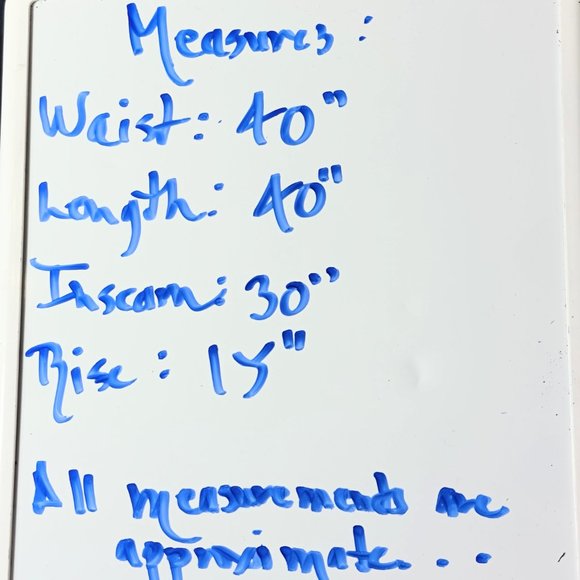 Measures:
Waist: 40"
Length: 40"
Inseam: 30"
Rise: 15"
All measurements are
approximate...